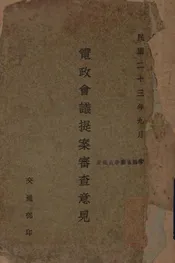 民國二十三年九月
電政會議提案審查意見
交通部印